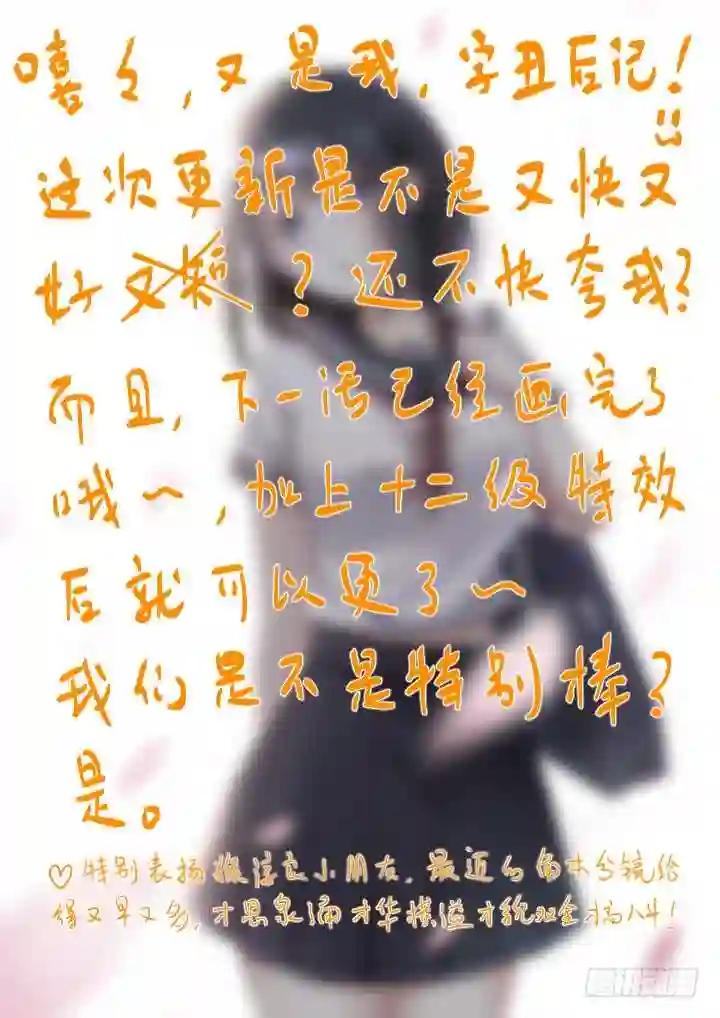 嘻々，又是我，字丑后记！
这次更新是不是又快又
好又？还不快夸我？
而且，下一话已经画完了
哦～，加上十二级特效
后就可以更了～
我们是不是特别棒？
是。
♡特别表扬小朋友，最近的剧本分镜给
得又早又多，才思泉涌才华横溢才貌双全才高八斗！
腾讯动漫